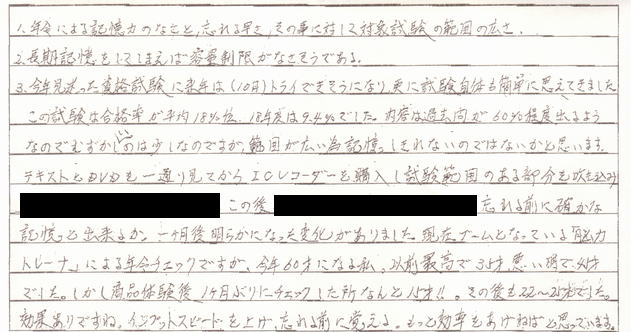 1. 年令による記憶力のなさと、忘れる早さ、その事に対して対象試験の範囲の広さ、
2. 長期記憶をしてしまえば容量制限がなさそうである。
3. 今年見送った資格試験に来年は(10月)トライできそうになり、更に試験自体も簡単に思えてきました
この試験は合格率が平均18%位、18年度は9.4%でした。内容は過去問が60%程度出るよう
なのでむずかしいのは少しなのですが、範囲が広い為記憶しきれないのではないかと思います。
テキストとDVDを一通り見てからICレコーダーを購入し試験範囲のある部分を吹き込み
この後 忘れる前に確かな
記憶と出来るか。一ヶ月後明らかになった変化がありました。現在ブームとなっている「脳力
トレーナー」による年令チェックですが、今年60才になる私。以前最高で35才、悪い時で
でした。しかし商品体験後、1ヶ月ぶりにチェックした所なんと15才!!。その後も22〜25才でした。
効果ありですね。インプットスピードを上げ、忘れる前に覚える。もっと効率をあげねばと思っています。